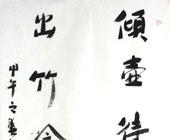 傾壺待
出竹
甲午之